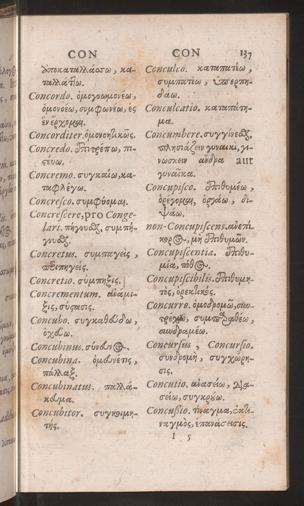 CON
CON 137
ἀποκαταλλάσσω, κα-
ταλλάττω.
Concordo. ὁμογνωμονέω,
ὁμονοέω, συμφωνέω, εἰς
ἓν ἔρχομαι.
Concorditer. ὁμονοητικῶς.
Concredo. ἐπιτρέπω, πι-
στεύω.
Concremo. συγκαίω, κα-
ταφλέγω.
Concresco. συμφύομαι.
Concrescere, pro Conge-
lari. πήγνυσθαι, συμπή-
γνυσθαι.
Concretus. συμπαγεὶς,
περιπηγείς.
Concretio. σύμπηξις.
Concrementum.
ξις, σύστασις.
Concubo. συγκαθεύδω,
εὕδω.
Concubinus. σύνευνος.
Concubina. ὁμευνέτις,
πάλλαξ.
Concubinatus. παλλά-
κευμα.
Concubitor. συγκοιμη-
τής.
Conculco. καταπατέω,
συμπατέω, ὑπερπη-
δάω.
Conculcatio. καταπάτη-
μα.
Concumbere. συγγίνεσθαι,
πλησιάζειν γυναικὶ, γι-
νώσκειν ἄνδρα aut
γυναῖκα.
Concupisco. ἐπιθυμέω,
ὀρέγομαι, ὀργάω, δι-
ψάω.
non-Concupiscens. ἀνεπί-
μὴ ἐπιθυμῶν.
Concupiscentia. ἐπιθυ-
μία, πόθος.
Concupiscibilis. ἐπιθυμη-
τὸς, ὀρεκτικός.
Concurro. ὁμοδρομῶ, συν-
τρέχω,
συνδραμέω.
Concursus, Concursio.
συνδρομὴ, συγχώρη-
σις.
Concutio. ἀνασείω, δια-
σείω, συγκρούω.
Concussio. τίναγμα, ἐκτι-
ναγμὸς, ἐπανάσεισις.
I 5